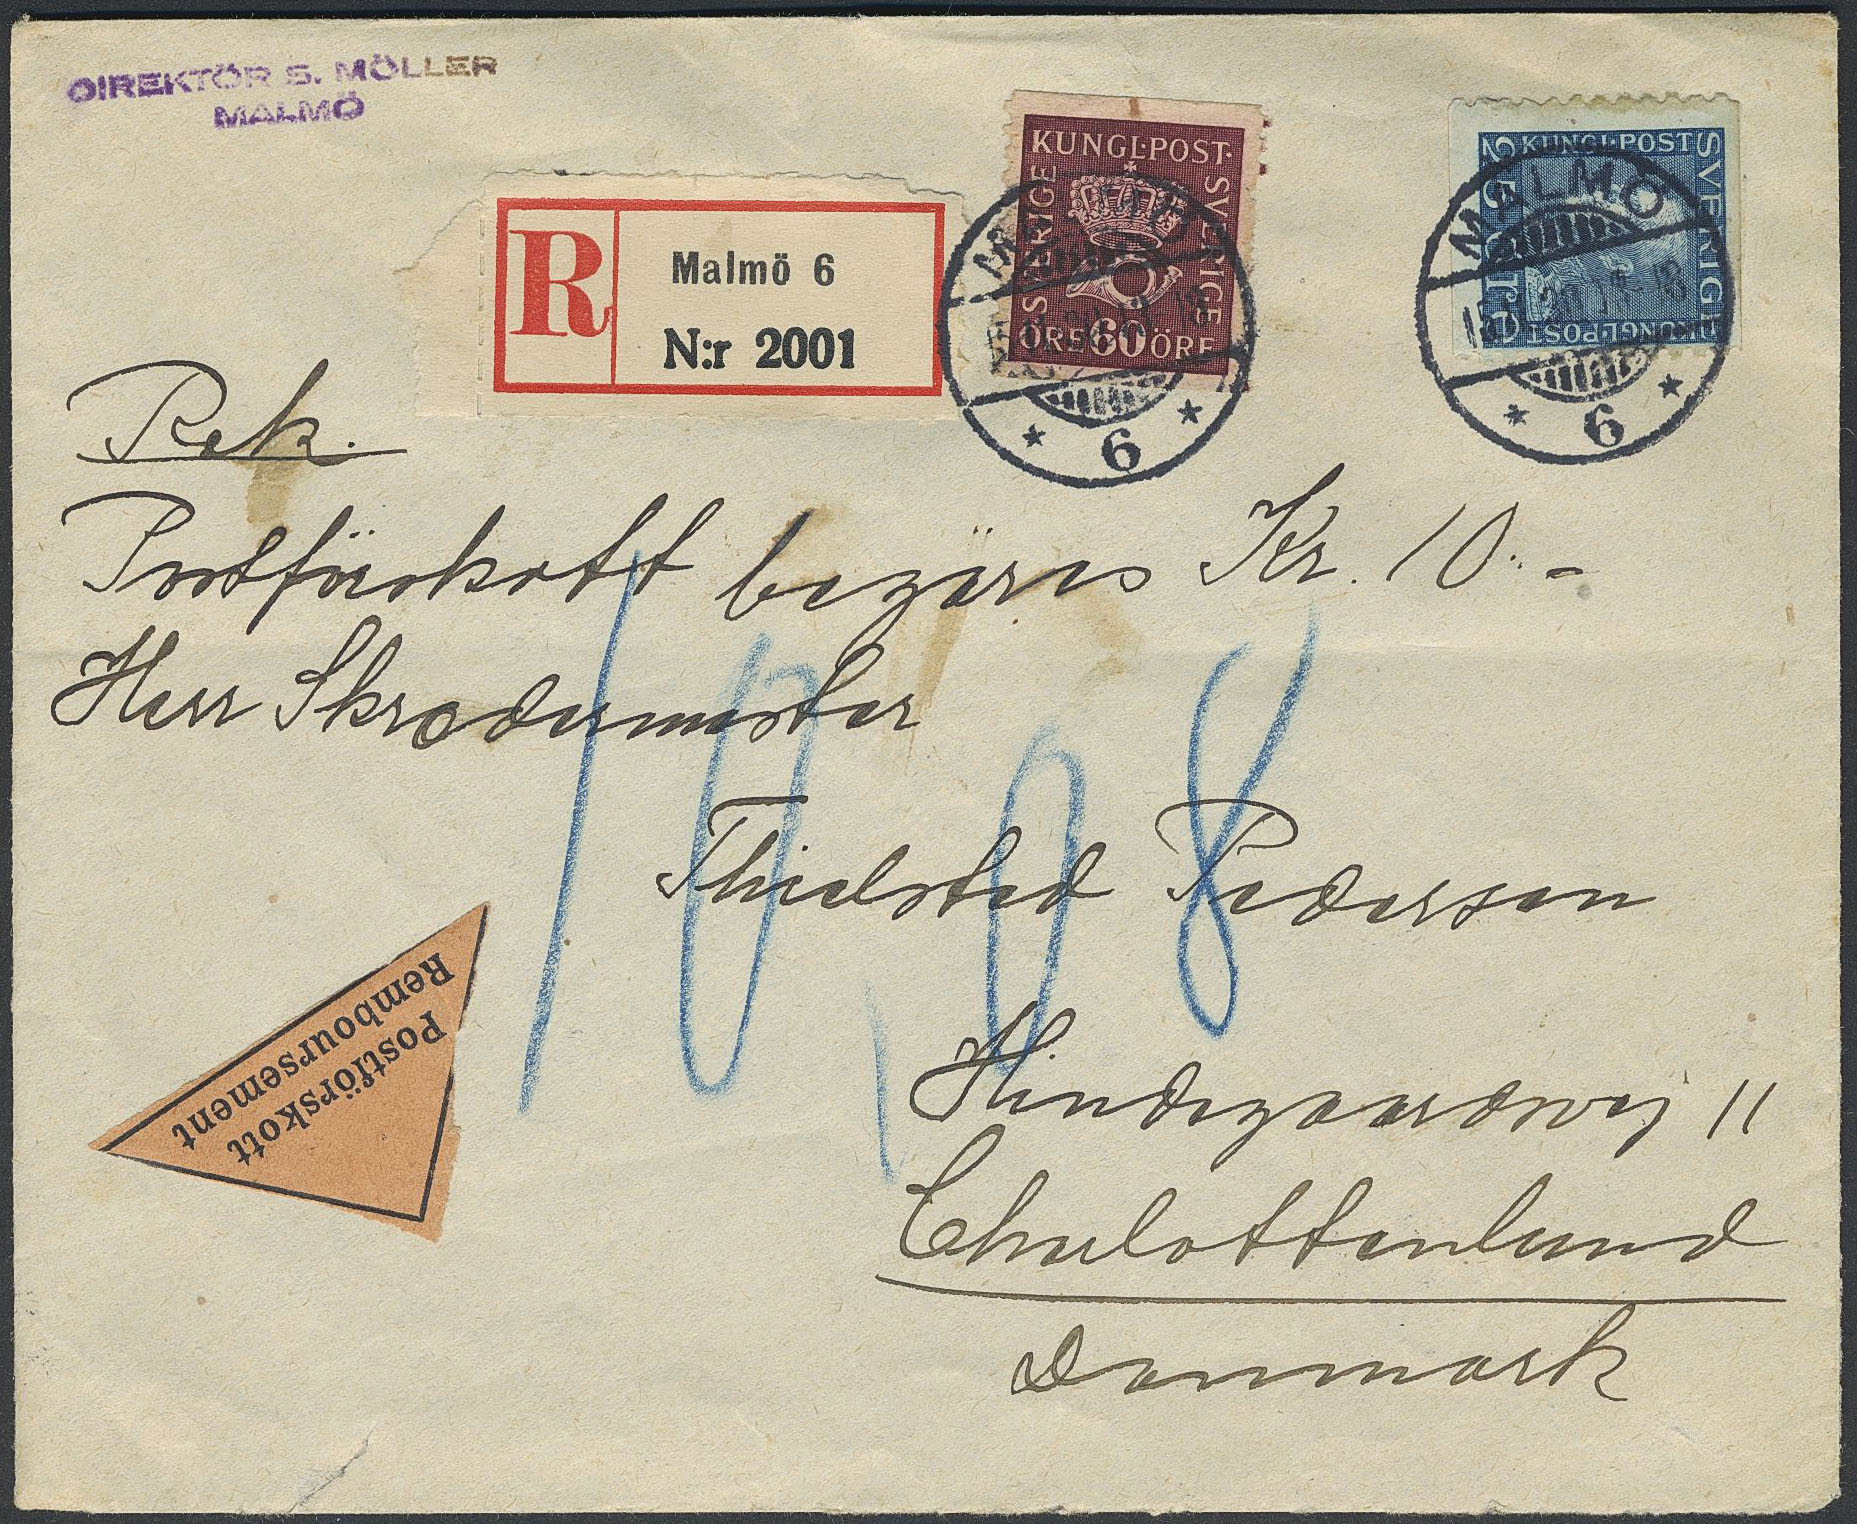 DIREKTÖR S. MÖLLER
MALMÖ
R
Malmö 6
N:r 2001
KUNGL·POST·
SVERIGE
SVERIGE
ÖRE 60 ÖRE
MALMÖ
6
KUNGL·POST
SVERIGE
KUNGL·POST
MALMÖ
6
Rek.
Postförskott begäres Kr. 10.-
Herr Skrædermester
10,08
Thielsted Pedersen
Hindegaardsvej 11
Charlottenlund
Danmark
Postförskott
Remboursement